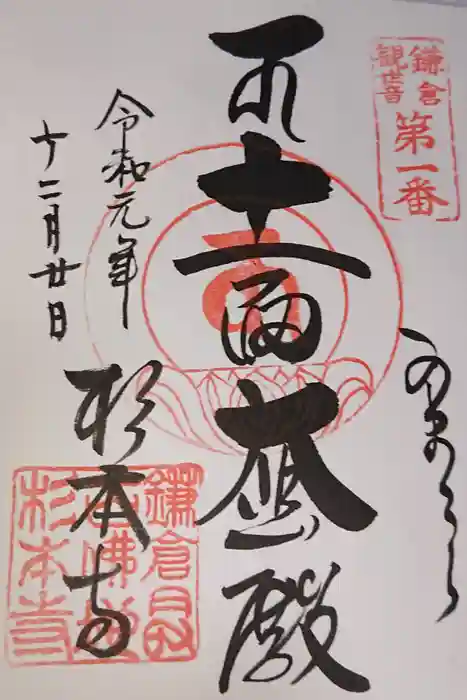 鎌倉
観世音
第一番
かまくら
十一面大悲殿
令和元年
十二月廿日
杉本寺
鎌倉
佛
杉本寺